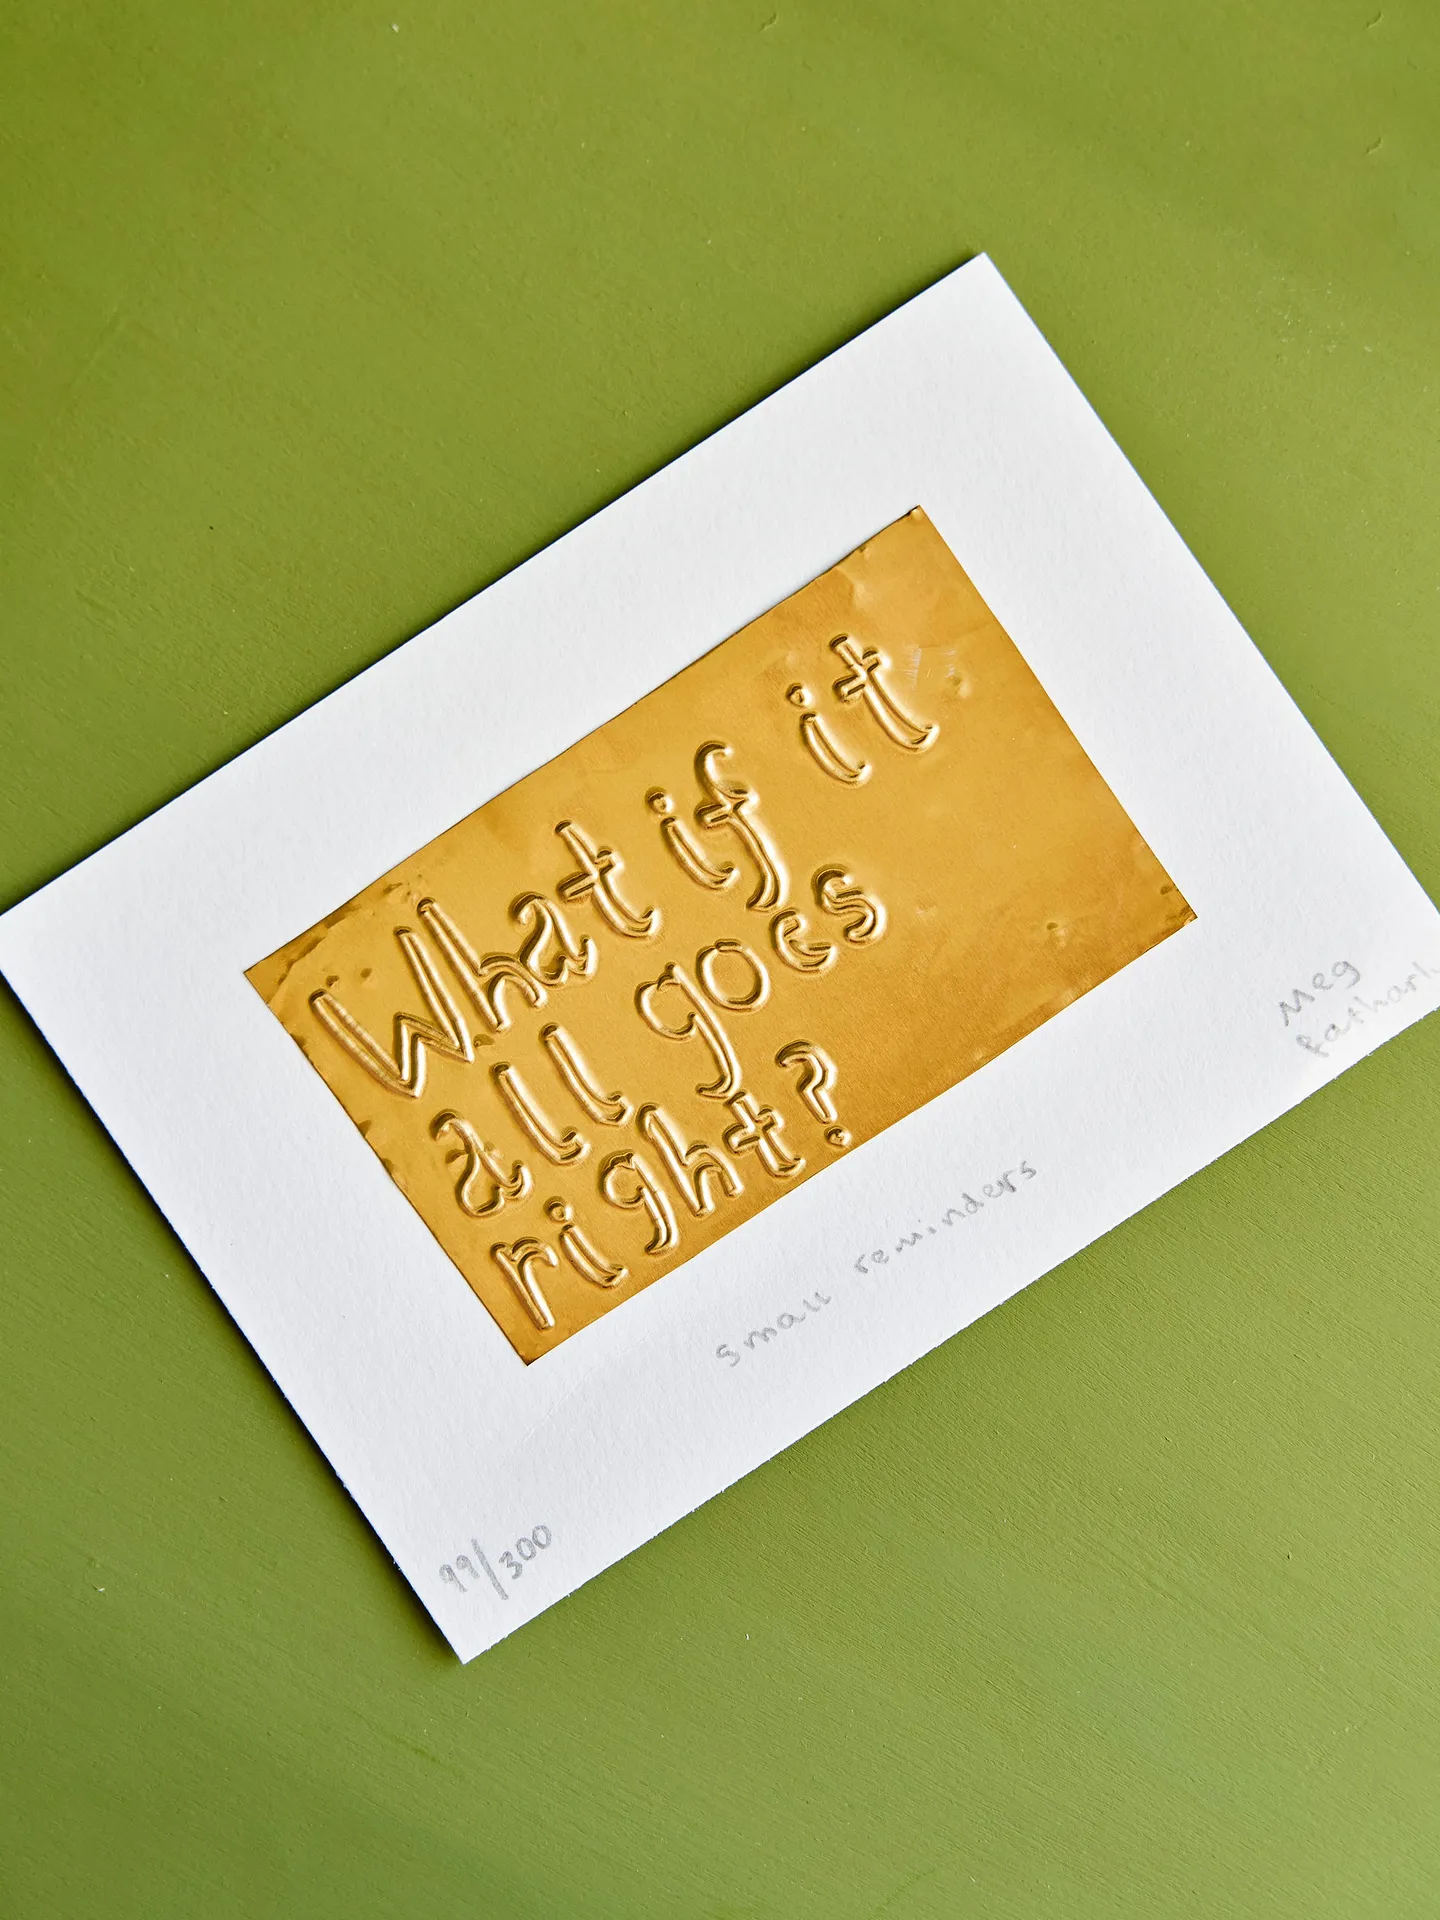 What if it
all goes
right?
small reminders
Meg
99/300